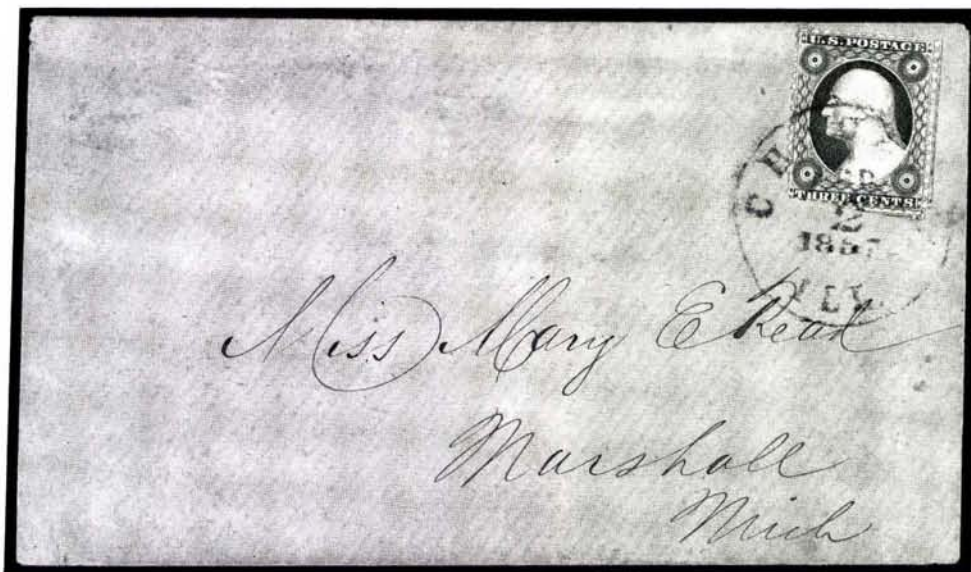 U.S. POSTAGE
THREE CENTS
12
1857
ILL.
Miss Mary E
Marshall
Mich